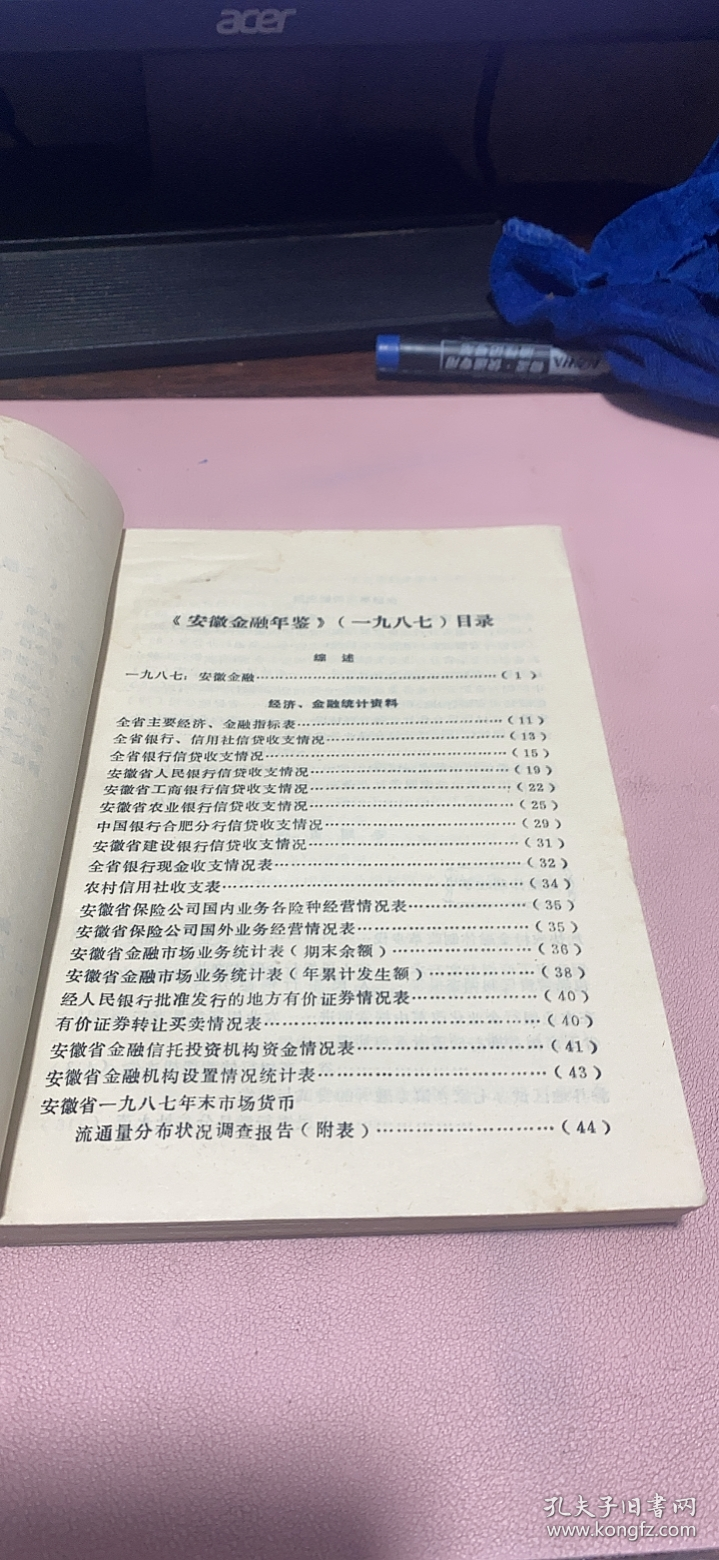 acer
《安徽金融年鉴》（一九八七）目录
综 述
一九八七：安徽金融……………………………………（1）
经济、金融统计资料
全省主要经济、金融指标表……………………………（11）
全省银行、信用社信贷收支情况………………………（13）
全省银行信贷收支情况…………………………………（15）
安徽省人民银行信贷收支情况…………………………（19）
安徽省工商银行信贷收支情况…………………………（22）
安徽省农业银行信贷收支情况…………………………（25）
中国银行合肥分行信贷收支情况………………………（29）
安徽省建设银行信贷收支情况…………………………（31）
全省银行现金收支情况表………………………………（32）
农村信用社收支表………………………………………（34）
安徽省保险公司国内业务各险种经营情况表…………（35）
安徽省保险公司国外业务经营情况表…………………（35）
安徽省金融市场业务统计表（期末余额）……………（36）
安徽省金融市场业务统计表（年累计发生额）………（38）
经人民银行批准发行的地方有价证券情况表…………（40）
有价证券转让买卖情况表………………………………（40）
安徽省金融信托投资机构资金情况表…………………（41）
安徽省金融机构设置情况统计表………………………（43）
安徽省一九八七年末市场货币
流通量分布状况调查报告（附表）……………………（44）
孔夫子旧书网
www.kongfz.com